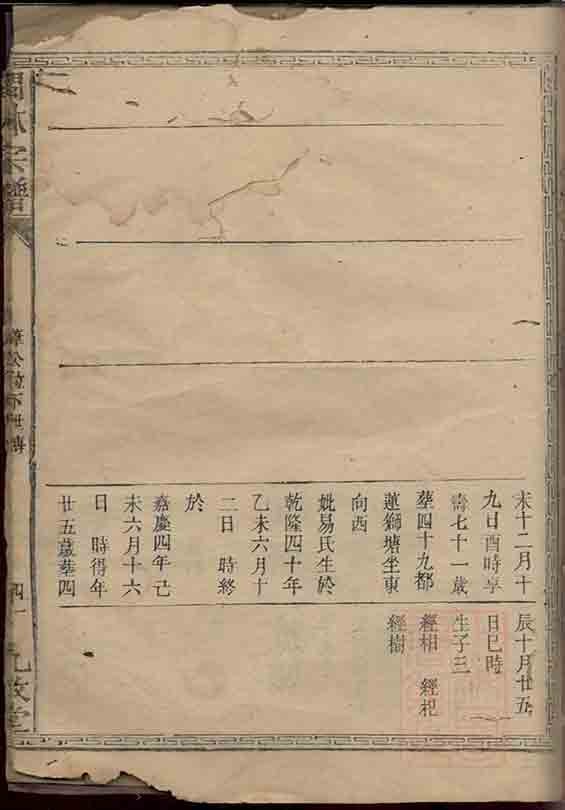 未十二月十
九日酉時享
壽七十一歲
塟四十九都
蓮獅塘坐東
向西
妣易氏生於
乾隆四十年
乙未六月十
二日　時終
於
嘉慶四年己
未六月十六
日　時得年
廿五歲塟四
辰十月廿五
日巳時
生子三
經相　經杞
經樹
宗譜
公位下世傳
四一